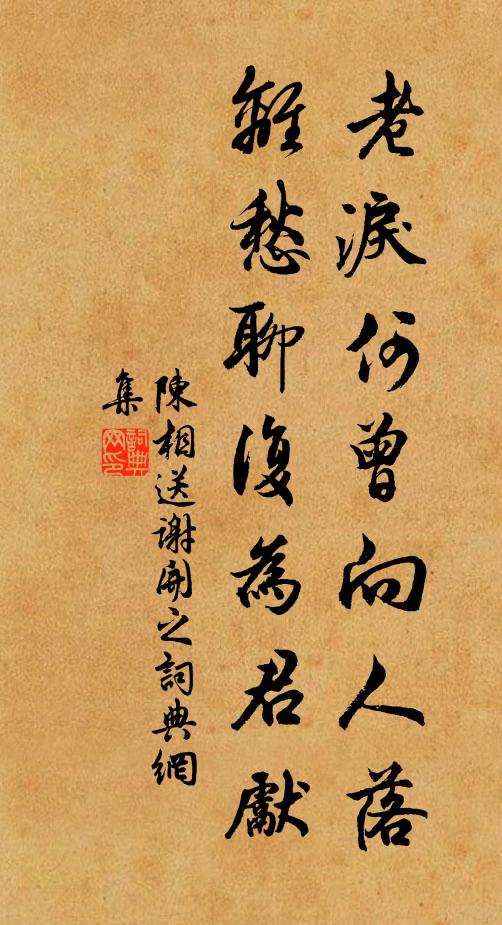 老淚何曾向人落
離愁聊復為君獻
陳相送謝開之詞典網
集
詞典
网印